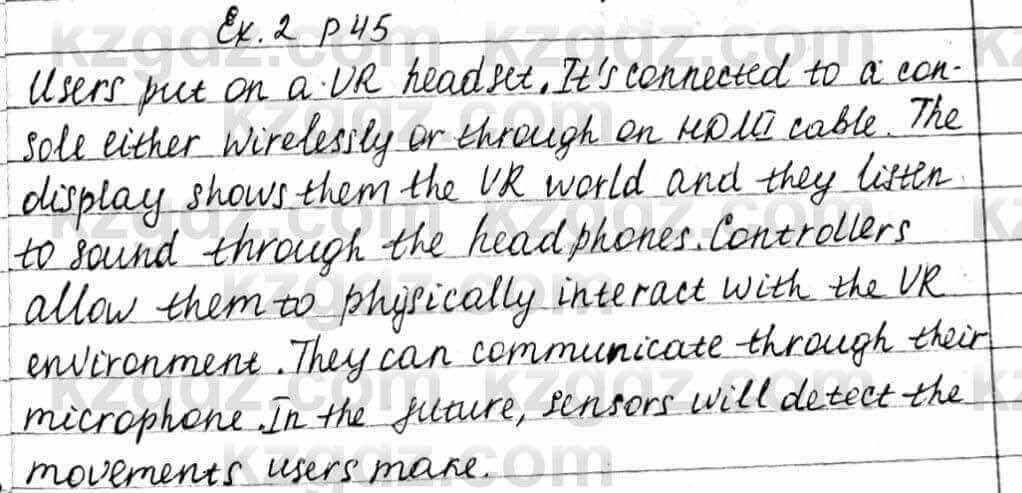 Ex. 2 p 45
Users put on a VR headset. It's connected to a con-
sole either wirelessly or through an HDMI cable. The
display shows them the VR world and they listen
to sound through the headphones. Controllers
allow them to physically interact with the VR
environment. They can communicate through their
microphone. In the future, sensors will detect the
movements users make.